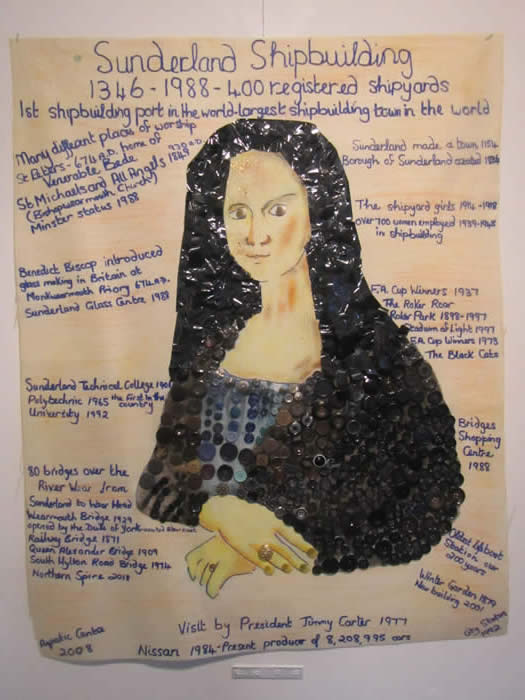 Sunderland Shipbuilding
1346 - 1988 - 400 registered shipyards
1st shipbuilding port in the world - largest shipbuilding town in the world
Many different places of worship
St Peters - 674 A.D. home of
Venerable Bede
St Michaels and All Angels
(Bishopwearmouth Church)
Minster status 1988
Benedict Biscop introduced
glass making in Britain at
Monkwearmouth Priory 674 A.D.
Sunderland Glass Centre 1988
Sunderland Technical College 1901
Polytechnic 1965 the first in the country
University 1992
80 bridges over the
River Wear from
Sunderland to Wear Head
Wearmouth Bridge 1929
opened by the Duke of York
Railway Bridge 1871
Queen Alexander Bridge 1909
South Hylton Road Bridge 1974
Northern Spire 2018
Aquatic Centre
2008
Sunderland made a town 1154
Borough of Sunderland created
The shipyard girls 1914 - 1918
over 700 women employed 1939-1945
in shipbuilding
F.A. Cup Winners 1937
The Roker Roar
Roker Park 1898-1997
Stadium of Light 1997
F.A Cup Winners 1973
The Black Cats
Bridges
Shopping
Centre
1988
Oldest lifeboat
Station over
200 years
Winter Garden 1879
New building 2001
City Status
1992
Visit by President Jimmy Carter 1977
Nissan 1984 - Present producer of 8,208,995 cars